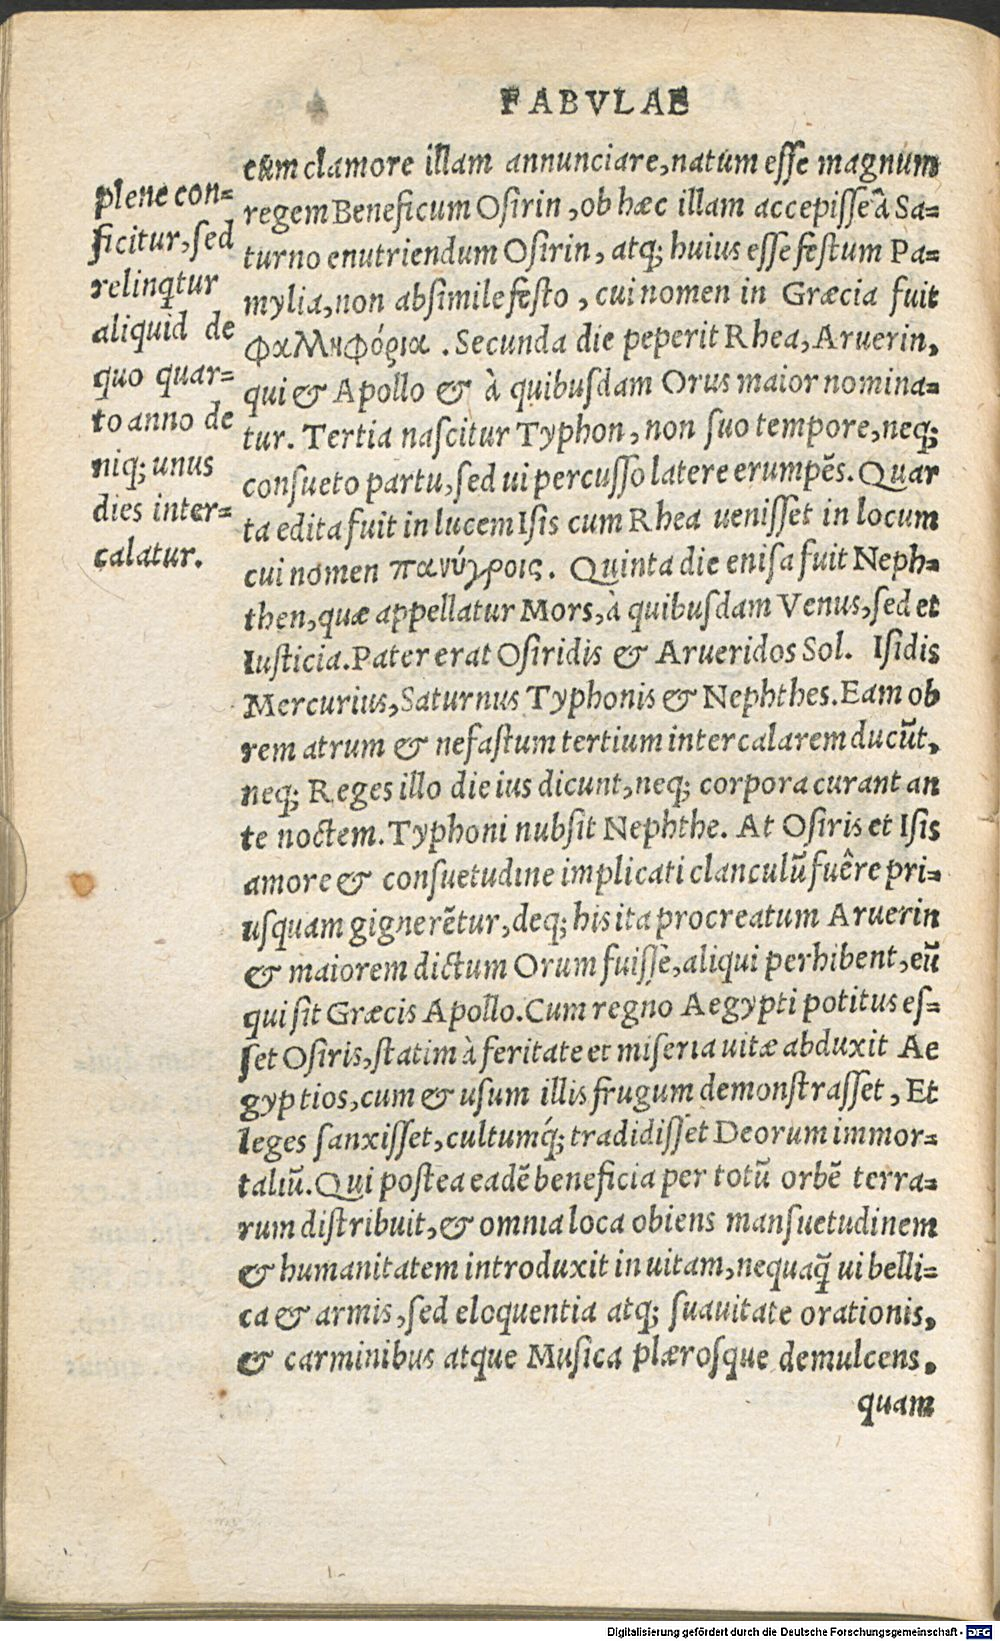 FABVLAE
plene con-
ficitur, sed
relinqtur
aliquid de
quo quar-
to anno de
niq; unus
dies inter-
calatur.
cum clamore illam annunciare, natum esse magnum
regem Beneficum Osirin, ob hæc illam accepisse â Sa-
turno enutriendum Osirin, atq; huius esse festum Pa-
mylia, non absimile festo, cui nomen in Græcia fuit
φαλληφόρια. Secunda die peperit Rhea, Aruerin,
qui & Apollo & à quibusdam Orus maior nomina-
tur. Tertia nascitur Typhon, non suo tempore, neq;
consueto partu, sed ui percusso latere erumpẽs. Quar
ta edita fuit in lucem Isis cum Rhea uenisset in locum
cui nomen πανύγροις. Quinta die enisa fuit Neph-
then, quæ appellatur Mors, à quibusdam Venus, sed et
Iusticia. Pater erat Osiridis & Arueridos Sol. Isidis
Mercurius, Saturnus Typhonis & Nephthes. Eam ob
rem atrum & nefastum tertium intercalarem ducũt,
neq; Reges illo die ius dicunt, neq; corpora curant an
te noctem. Typhoni nubsit Nephthe. At Osiris et Isis
amore & consuetudine implicati clanculũ fuêre pri-
usquam gignerẽtur, deq; his ita procreatum Aruerin
& maiorem dictum Orum fuisse, aliqui perhibent, eũ
qui sit Græcis Apollo. Cum regno Aegypti potitus es-
set Osiris, statim à feritate et miseria uitæ abduxit Ae
gyptios, cum & usum illis frugum demonstrasset, Et
leges sanxisset, cultumq́; tradidisset Deorum immor-
taliũ. Qui postea eadẽ beneficia per totũ orbẽ terra-
rum distribuit, & omnia loca obiens mansuetudinem
& humanitatem introduxit in uitam, nequaq̃ ui belli-
ca & armis, sed eloquentia atq; suauitate orationis,
& carminibus atque Musica plærosque demulcens,
quam
Digitalisierung gefördert durch die Deutsche Forschungsgemeinschaft - DFG